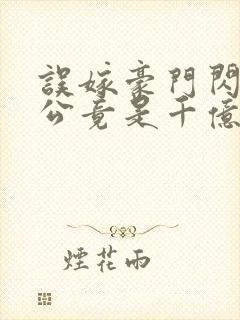 誤嫁豪門閃
公竟是千億
煙花雨